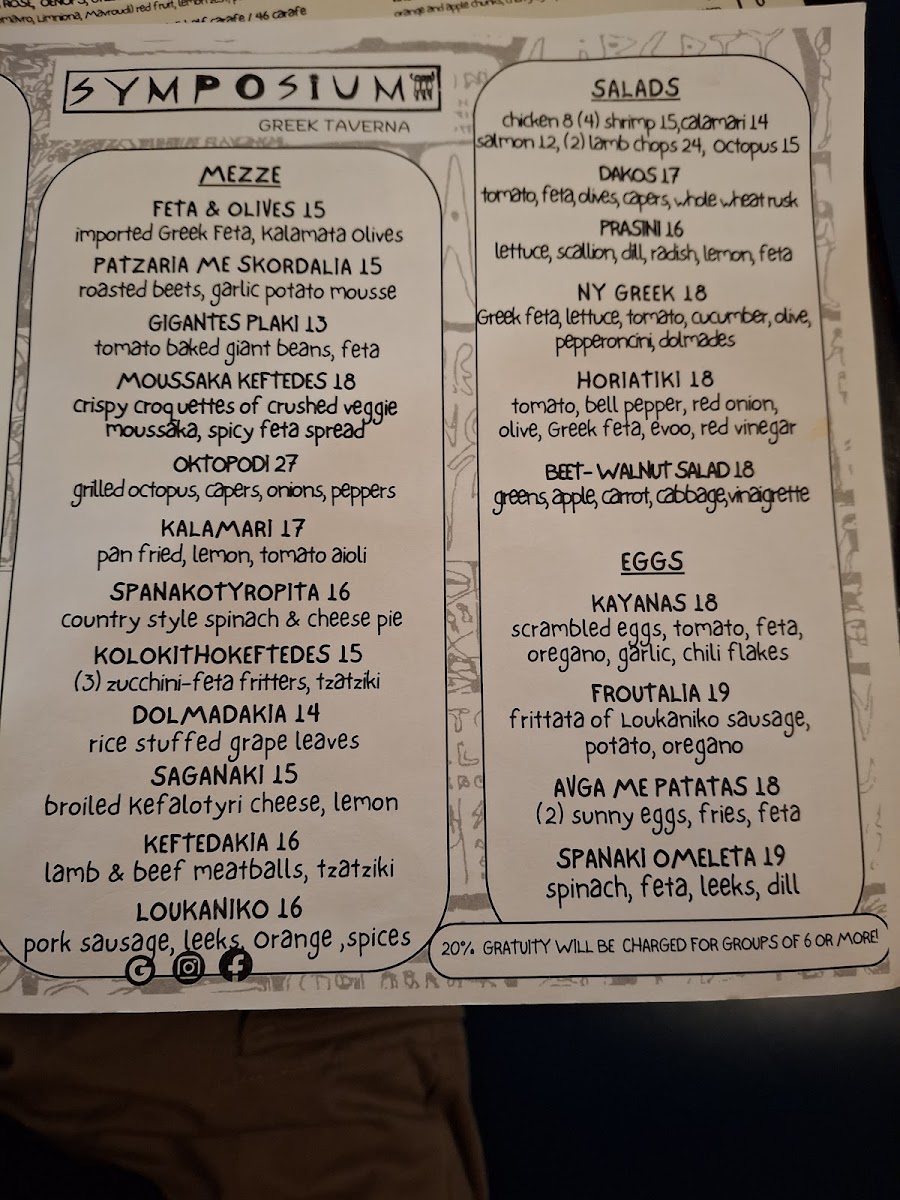 mavro, Limniona, Mavroudi) red fruit,
carafe / 46 carafe
orange and apple chunks,
SYMPOSIUM
GREEK TAVERNA
MEZZE
FETA & OLIVES 15
imported Greek Feta, Kalamata Olives
PATZARIA ME SKORDALIA 15
roasted beets, garlic potato mousse
GIGANTES PLAKI 13
tomato baked giant beans, feta
MOUSSAKA KEFTEDES 18
crispy croquettes of crushed veggie
moussaka, spicy feta spread
OKTOPODI 27
grilled octopus, capers, onions, peppers
KALAMARI 17
pan fried, lemon, tomato aioli
SPANAKOTYROPITA 16
country style spinach & cheese pie
KOLOKITHOKEFTEDES 15
(3) zucchini-feta fritters, tzatziki
DOLMADAKIA 14
rice stuffed grape leaves
SAGANAKI 15
broiled kefalotyri cheese, lemon
KEFTEDAKIA 16
lamb & beef meatballs, tzatziki
LOUKANIKO 16
pork sausage, leeks, orange ,spices
SALADS
chicken 8 (4) shrimp 15,calamari 14
salmon 12, (2) lamb chops 24, octopus 15
DAKOS 17
tomato, feta, olives, capers, whole wheat rusk
PRASINI 16
lettuce, scallion, dill, radish, lemon, feta
NY GREEK 18
Greek feta, lettuce, tomato, cucumber, olive,
pepperoncini, dolmades
HORIATIKI 18
tomato, bell pepper, red onion,
olive, Greek feta, evoo, red vinegar
BEET- WALNUT SALAD 18
greens, apple, carrot, cabbage,vinaigrette
EGGS
KAYANAS 18
scrambled eggs, tomato, feta,
oregano, garlic, chili flakes
FROUTALIA 19
frittata of Loukaniko sausage,
potato, oregano
AVGA ME PATATAS 18
(2) sunny eggs, fries, feta
SPANAKI OMELETA 19
spinach, feta, leeks, dill
20% GRATUITY WILL BE CHARGED FOR GROUPS OF 6 OR MORE!